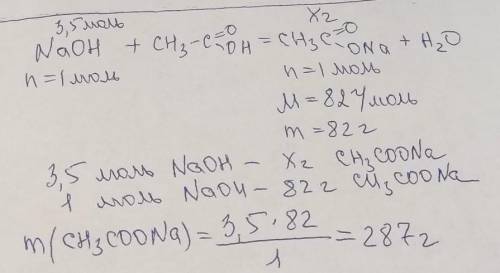 3,5 моль x г
NaOH + CH₃-C=O OH = CH₃C=O ONa + H₂O
n = 1 моль n = 1 моль
M = 82 г/моль
m = 82 г
3,5 моль NaOH – x г CH₃COONa
1 моль NaOH – 82 г CH₃COONa
m(CH₃COONa) = 3,5·82 / 1 = 287 г